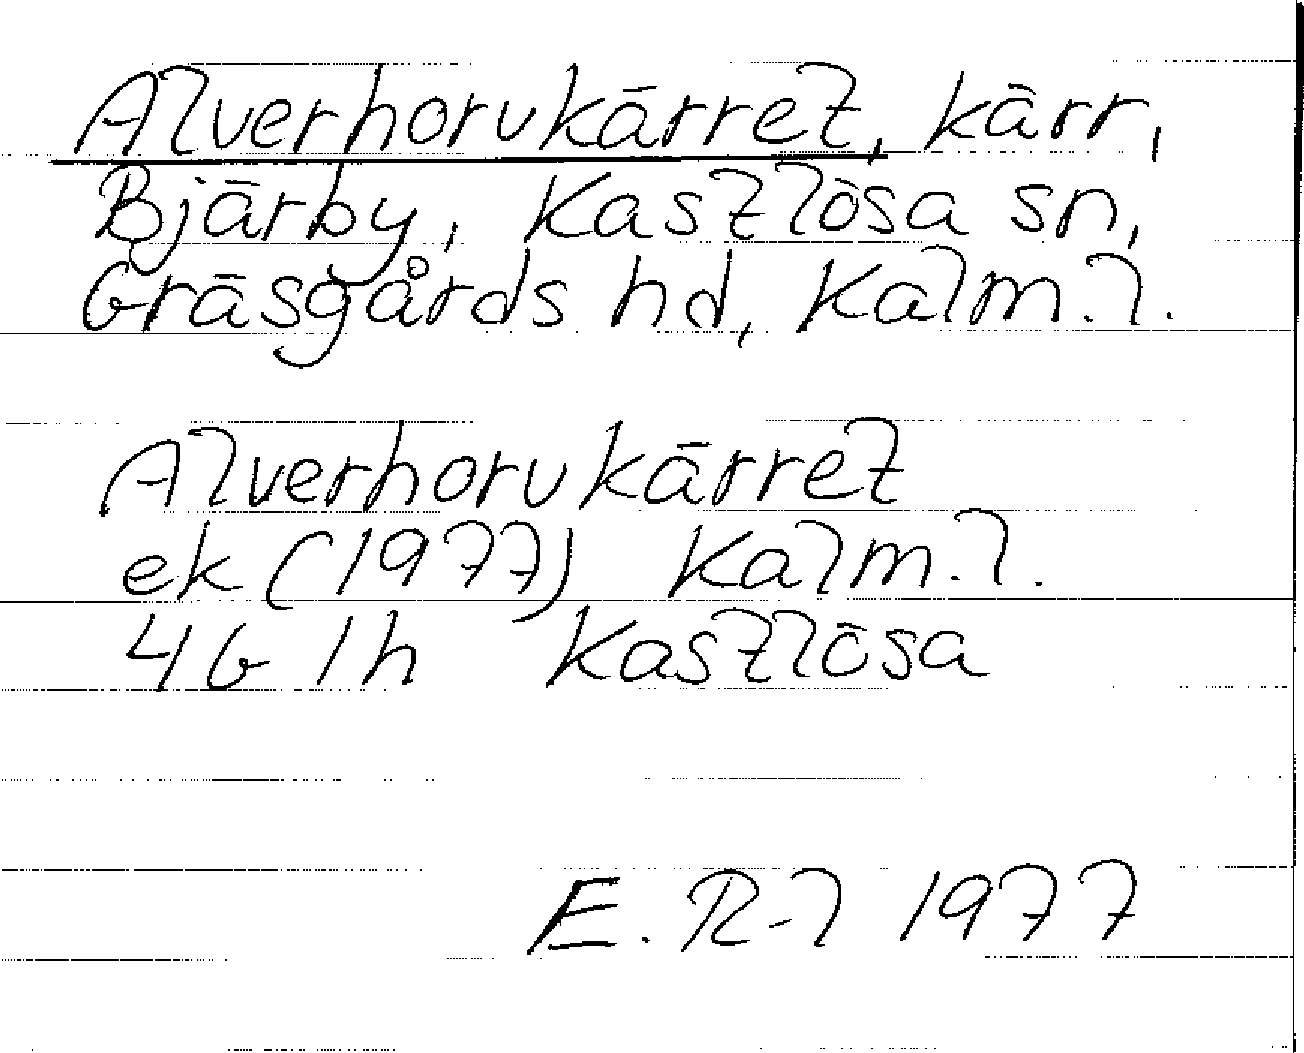 Alverhorvkärret, kärr,
Bjärby, Kastlösa sn,
Gräsgårds hd, Kalm.l.
Alverhorvkärret
ek (1977) Kalm.l.
4G 1h Kastlösa
E. R-l 1977